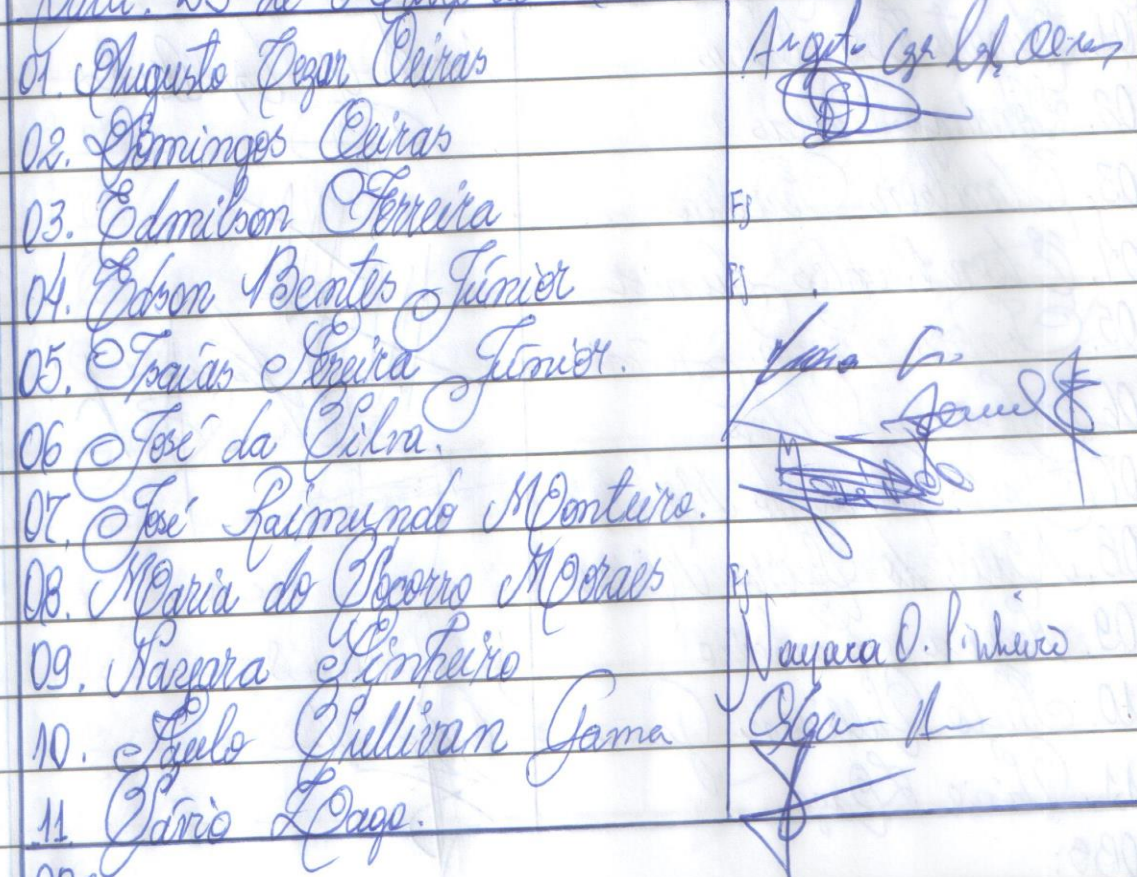 01. Augusto Cezar Oeiras
02. Domingos Oeiras
03. Edmilson Ferreira FJ
04. Edson Bentes Júnior FJ
05. Isaías Pereira Júnior.
06 José da Silva.
07. José Raimundo Monteiro.
08. Maria do Socorro Moraes FJ
09. Nayara Pinheiro Nayara O. Pinheiro
10. Paulo Sullivan Gama
11 Sávio Lago.